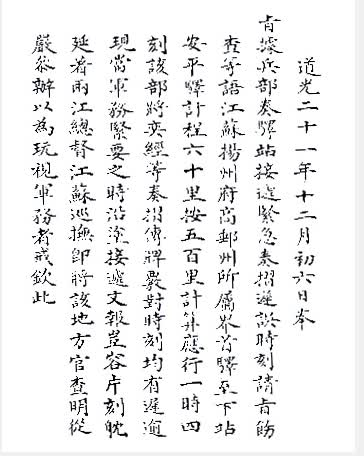 道光二十一年十二月初六日奉
旨據兵部奏驛站接遞緊急奏摺遲誤時刻請旨飭
查等語江蘇揚州府高郵州所屬界首驛至下站
安平驛計程六十里按五百里計算應行一時四
刻該部將奕經等奏摺傳牌覈對時刻均有遲逾
現當軍務緊要之時沿途接遞文報豈容片刻躭
延着兩江總督江蘇巡撫即將該地方官查明從
嚴叅辦以為玩視軍務者戒欽此